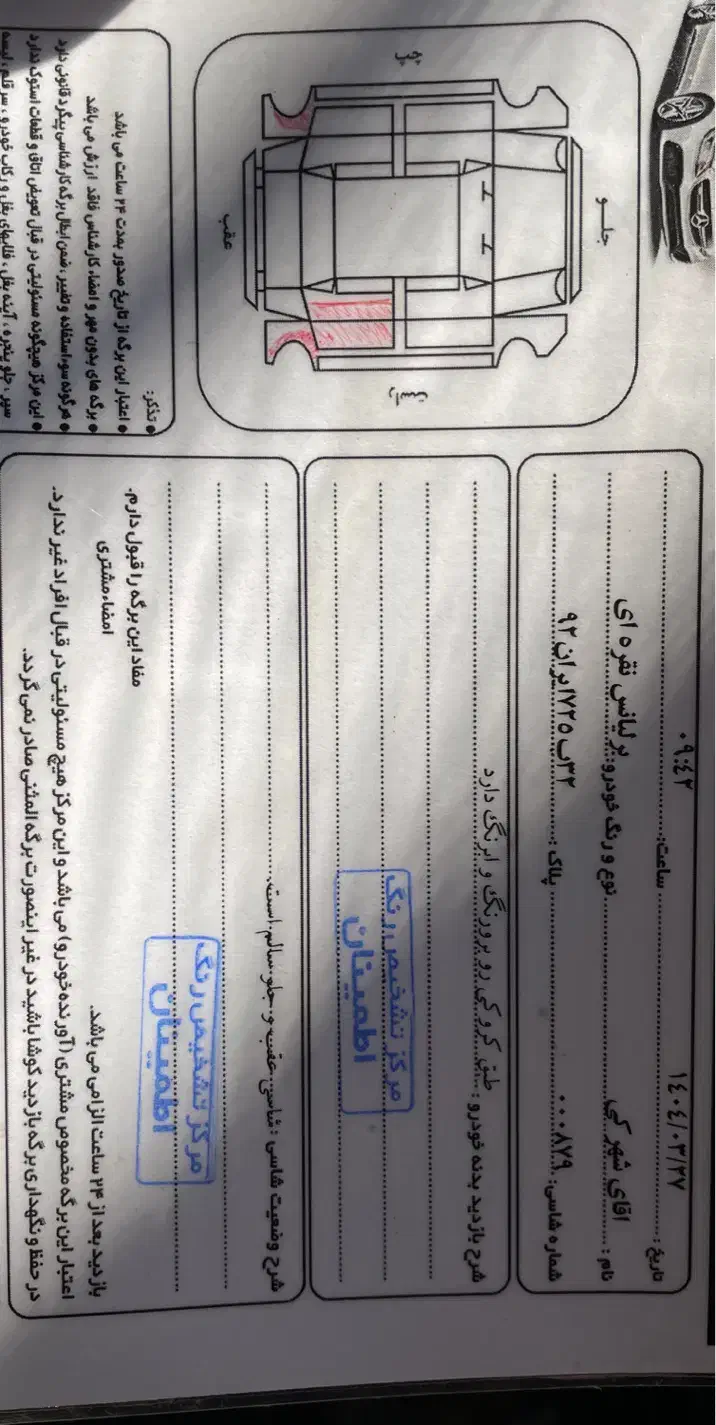 تاریخ : ۱۴۰۴/۰۳/۲۷ ساعت: ۰۹:۴۲
نام : اقای شهرکی نوع و رنگ خودرو: برلیانس نقره ای
شماره شاسی: ۰۰۰۸۷۹ پلاک : ۳۲ب۷۲۵ایران۹۲
شرح بازدید بدنه خودرو : طبق کروکی رو برو رنگ و ابرنگ دارد
مرکز تشخیص رنگ
اطمینان
شرح وضعیت شاسی : شاسی عقب و جلو سالم است.
مرکز تشخیص رنگ
اطمینان
مفاد این برگه را قبول دارم.
امضاء مشتری
بازدید بعد از ۲۴ ساعت الزامی می باشد.
اعتبار این برگه مخصوص مشتری (آورنده خودرو) می باشد و این مرکز هیچ مسئولیتی در قبال افراد غیر ندارد.
در حفظ و نگهداری برگه بازدید کوشا باشید در غیر اینصورت برگه المثنی صادر نمی گردد.
جلو
چپ
راست
عقب
تذکر:
● اعتبار این برگه از تاریخ صدور بمدت ۲۴ ساعت می باشد
● برگه های بدون مهر و امضاء کارشناس فاقد ارزش می باشد
● هرگونه سوء استفاده و تغییر ، ضمن ابطال برگه کارشناسی پیگرد قانونی دارد
● این مرکز هیچگونه مسئولیتی در قبال تعویض اتاق و قطعات استوک ندارد
سپر ، جلو پنجره ، آینه بغل ، قابهای بغل و رکاب خودرو ، سر قلم ، لیسه